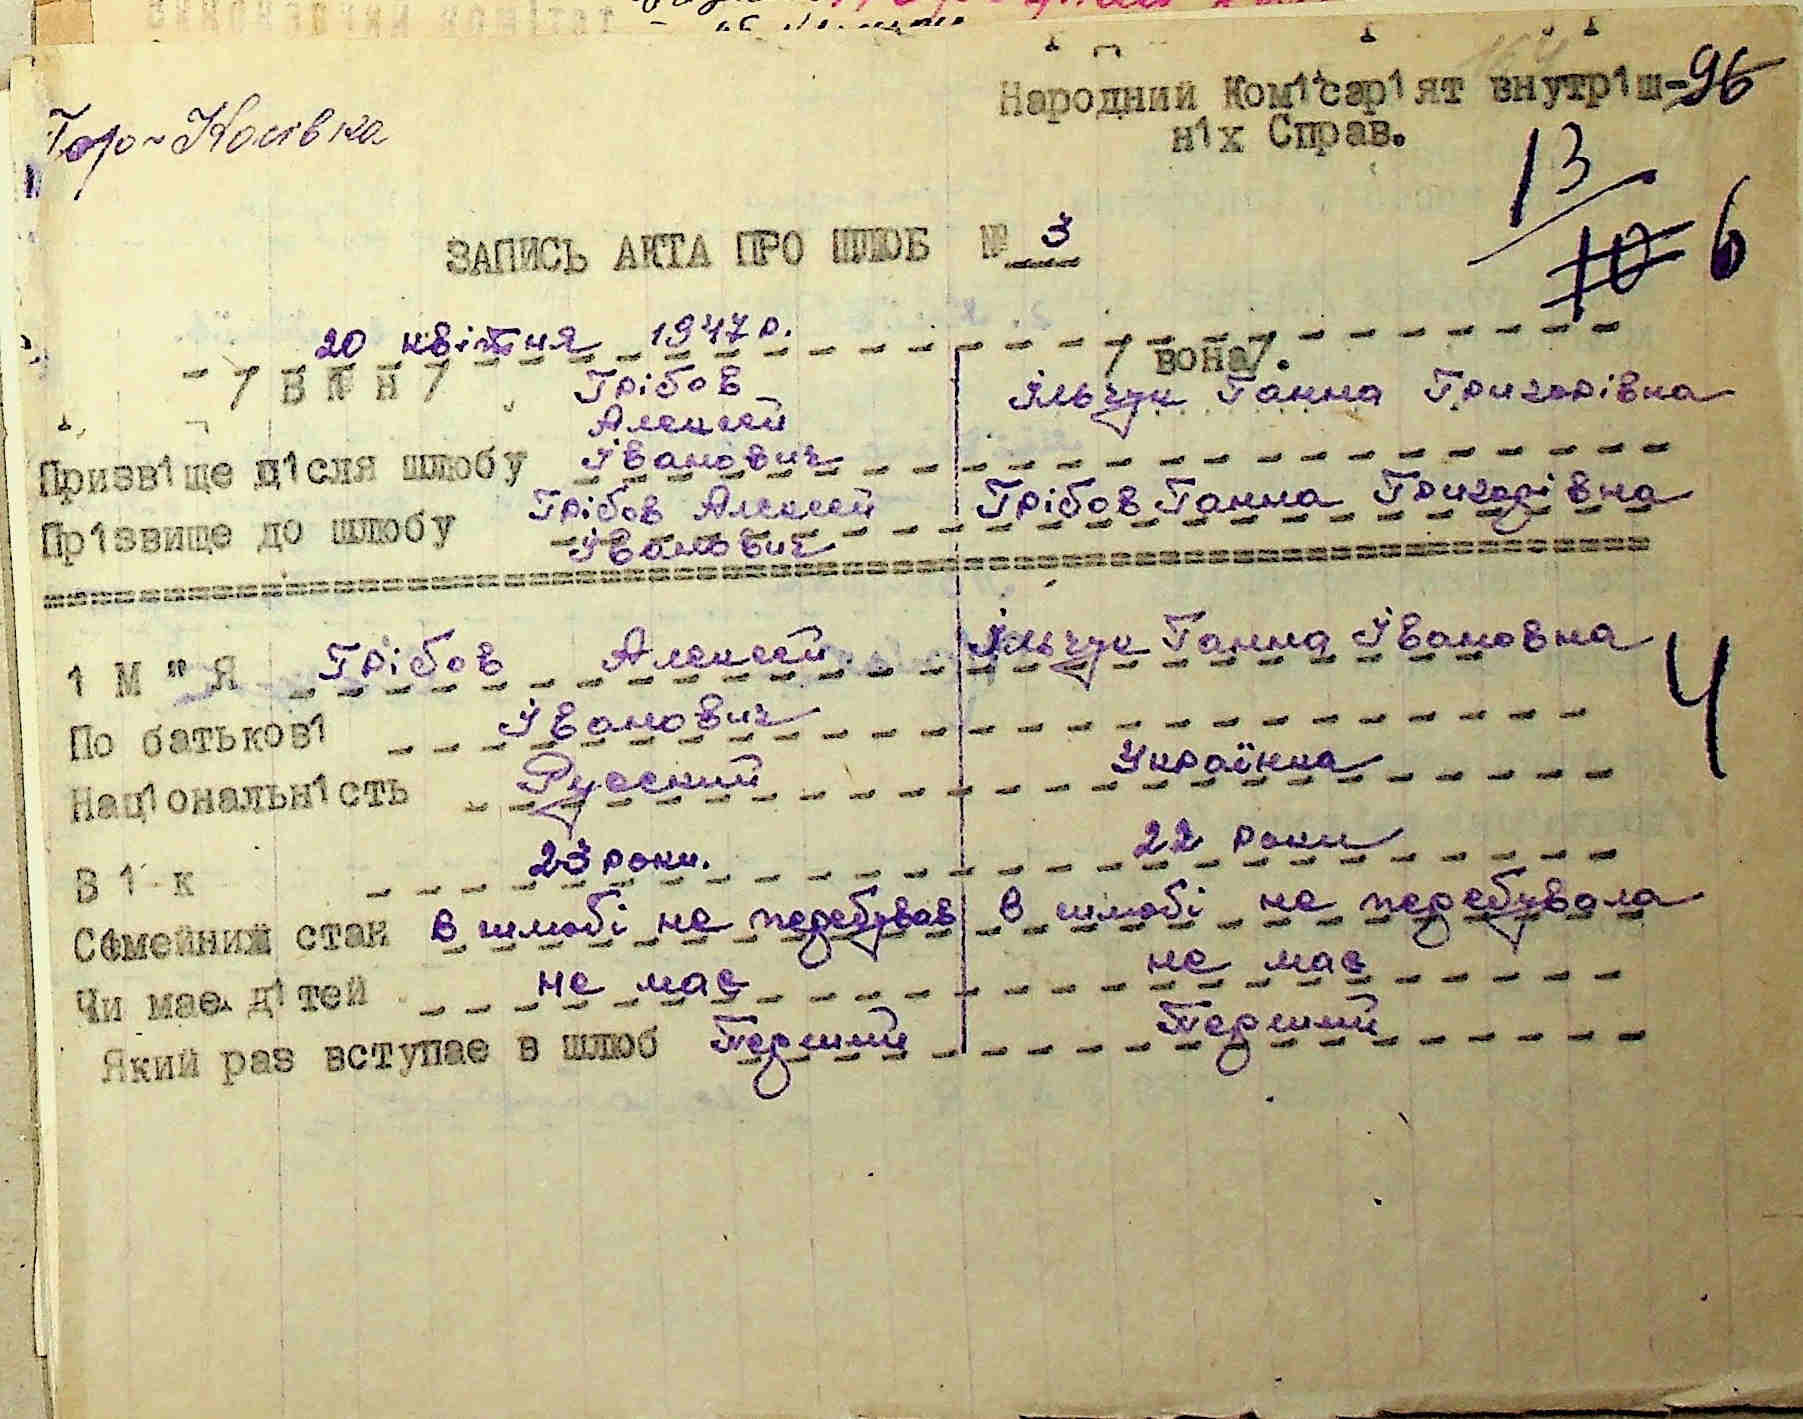 Народний Ком1сар1ят внутр1ш- 96
н1х Справ.
13
10 6
ЗАПИСЬ АКТА ПРО ШЛЮБ № 3
20 квітня 1947 р.
/ В І Н / Грібов / вона/.
Алексей Ільчук Ганна Григорівна
Призв1ще п1сля шлюбу Івановичь
Пр1звище до шлюбу Грібов Алексей Грібов Ганна Григорівна
Івановичь
1 М " Я Грібов Алексей Ільчук Ганна Івановна
4
По батьков1 Івановичь
Нац1ональн1сть Русский Українка
В 1 к 23 роки. 22 роки
Семейний стан В шлюбі не перебував В шлюбі не перебувала
Чи мае д1тей не має не має
Який раз вступае в шлюб Перший Перший